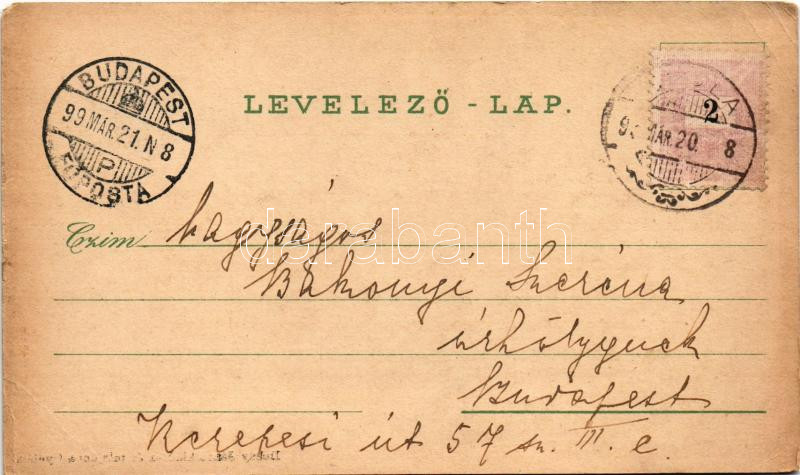 LEVELEZŐ - LAP.
BUDAPEST
99 MÁR. 21. N 8
P
FŐPOSTA
2
MÁR. 20. 8
Czim Nagyságos
Bakonyi Szeréna
úrhölgynek
Budapest
Kerepesi út 57 sz. III. e.
darabanth